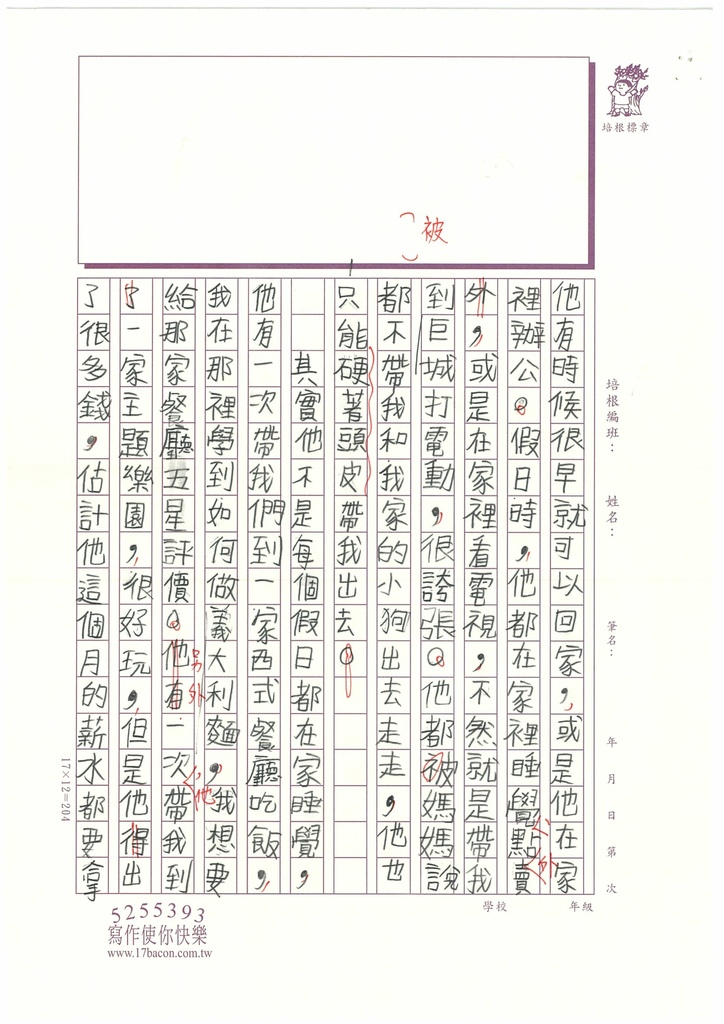 培根標章
被
培根編班：　姓名：　筆名：　年　月　日　第　次
他有時候很早就可以回家，或是他在家
裡辦公。假日時，他都在家裡睡覺點賣
外
外，或是在家裡看電視，不然就是帶我
到巨城打電動，很誇張。他都被媽媽說
都不帶我和我家的小狗出去走走，他也
只能硬著頭皮帶我出去。
其實他不是每個假日都在家睡覺，
他有一次帶我們到一家西式餐廳吃飯，
我在那裡學到如何做義大利麵，我想要
另外
他
給那家餐廳五星評價。他有一次帶我到
了一家主題樂園，很好玩，但是他得出
了很多錢，估計他這個月的薪水都要拿
17×12=204
學校　年級
5255393
寫作使你快樂
www.17bacon.com.tw